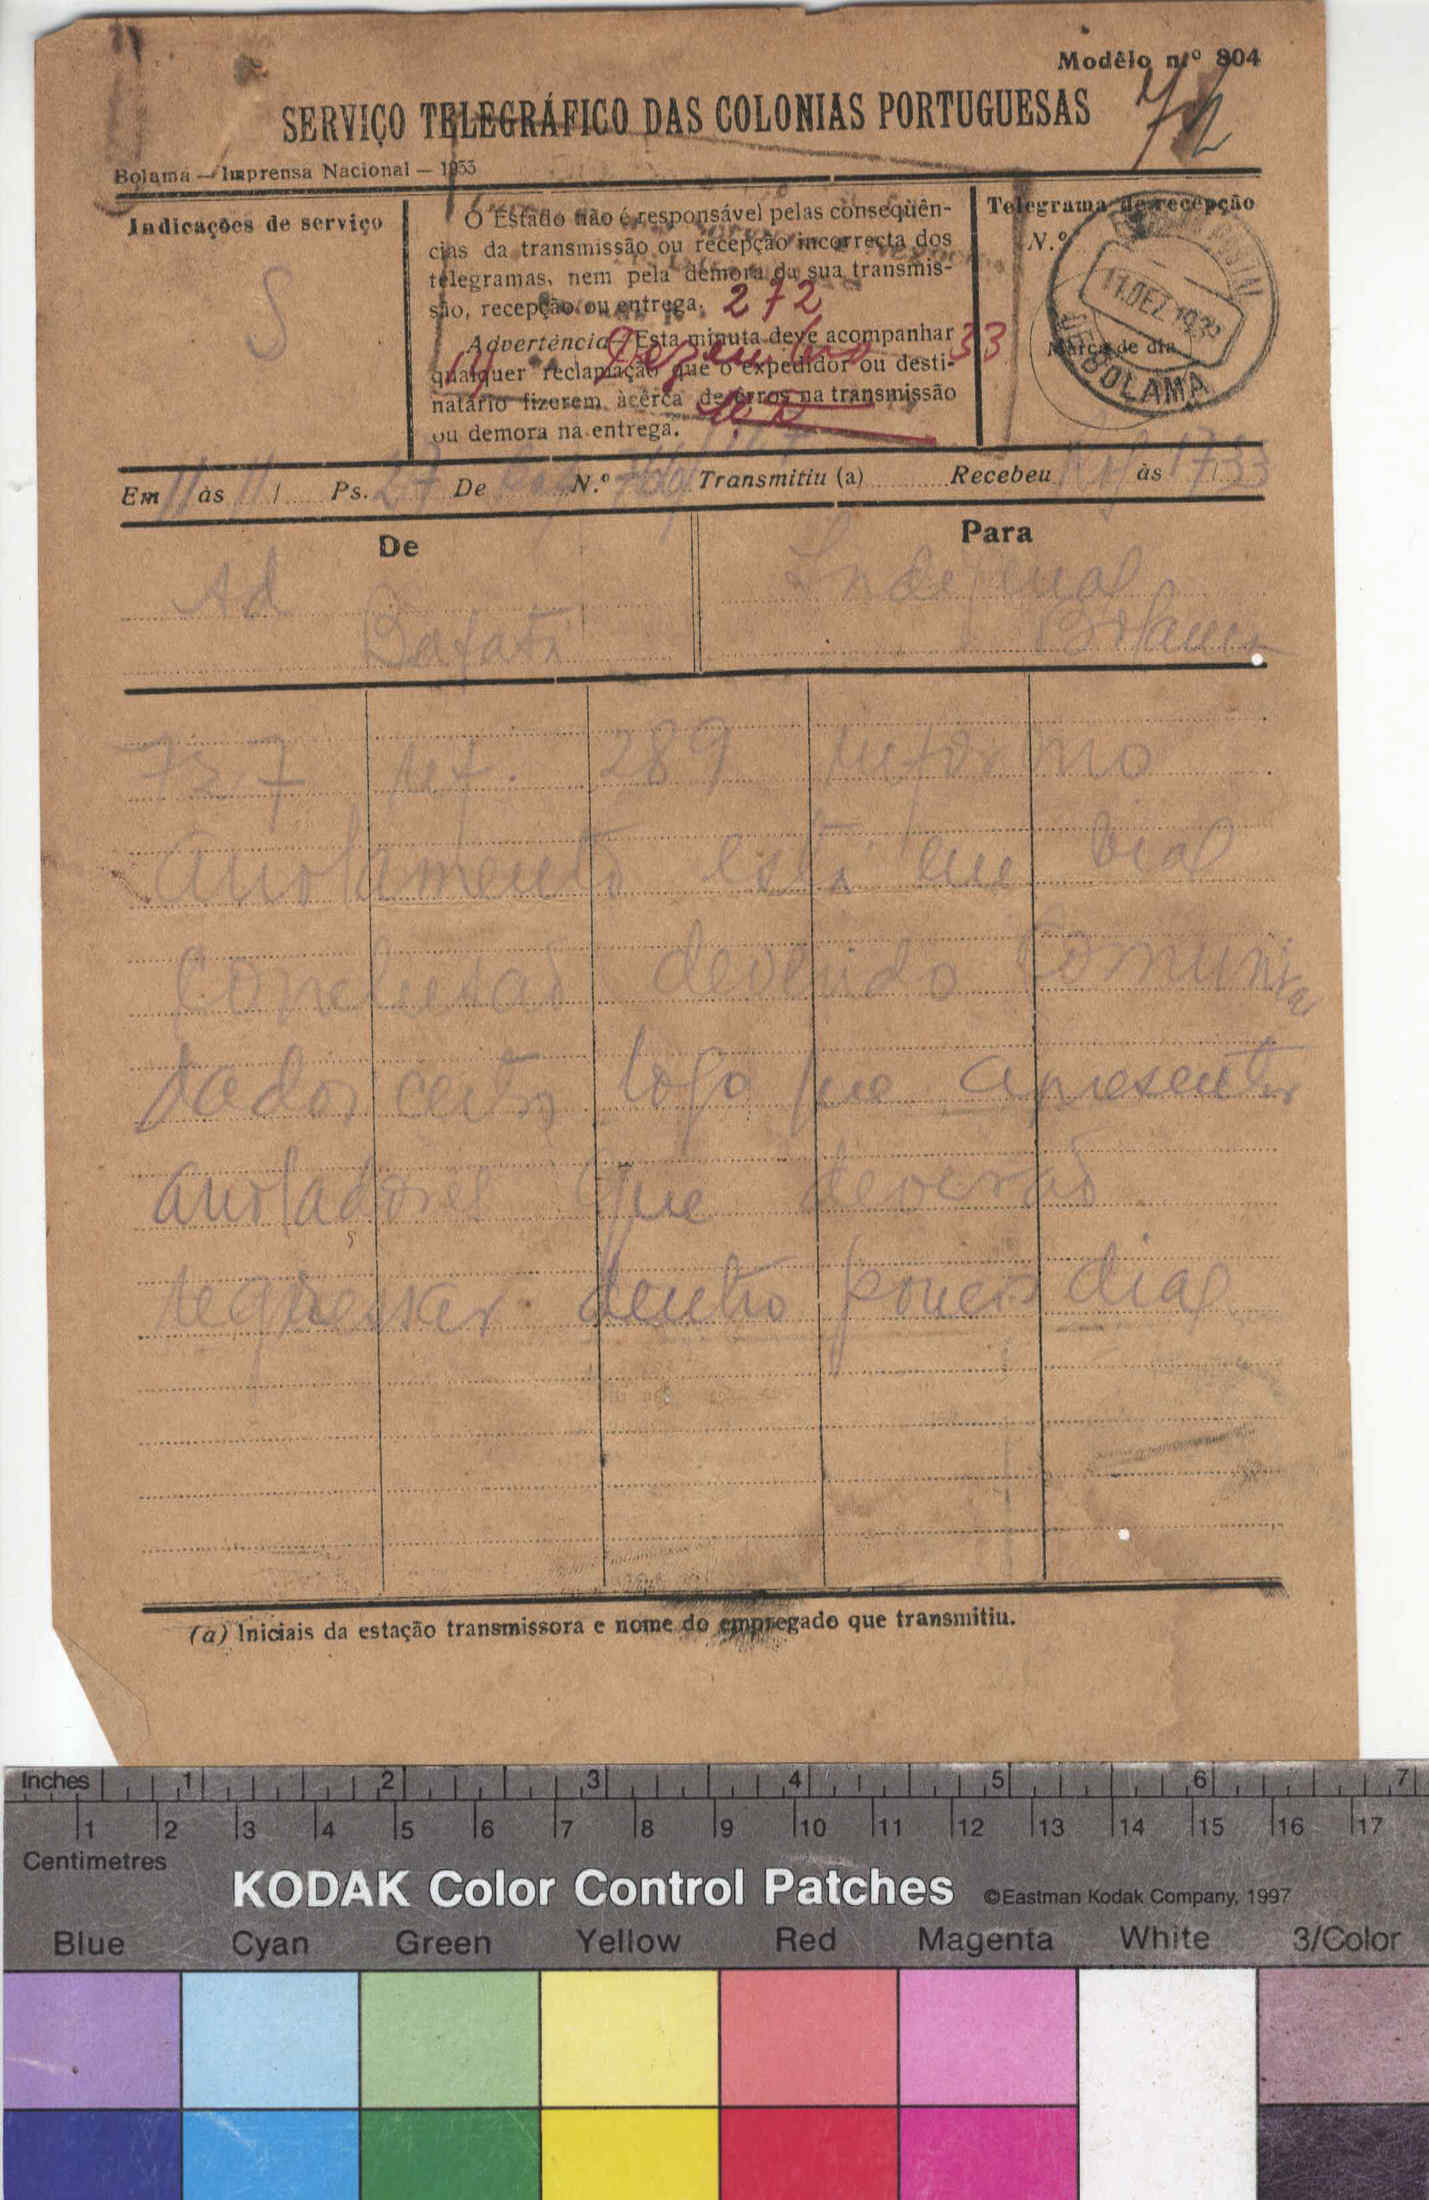 Modêlo n.º 804
SERVIÇO TELEGRÁFICO DAS COLONIAS PORTUGUESAS
Bolama — Imprensa Nacional — 1933
Indicações de serviço
S
O Estado não é responsável pelas conseqüên-
cias da transmissão ou recepção incorrecta dos
telegramas, nem pela demora da sua transmis-
são, recepção ou entrega.
272
Advertência: Esta minuta deve acompanhar
Dezembro 33
qualquer reclamação que o expedidor ou desti-
natário fizerem àcêrca de erros na transmissão
ou demora na entrega.
Telegrama de recepção
N.º
11.DEZ.1933
Marca de dia
BOLAMA
Em 11 às 11 Ps. 27 De N.º Transmitiu (a) Recebeu às 1733
De
Para
Ad
Bafatá
Indigenal
Bolama
727 ref. 289 informo
arrolamento está em vias
conclusão devendo comunicar
dados certos logo que apresentes
arroladores que deverão
regressar dentro poucos dias
(a) Iniciais da estação transmissora e nome do empregado que transmitiu.
Inches 1 2 3 4 5 6 7
1 2 3 4 5 6 7 8 9 10 11 12 13 14 15 16 17
Centimetres
KODAK Color Control Patches ©Eastman Kodak Company, 1997
Blue Cyan Green Yellow Red Magenta White 3/Color